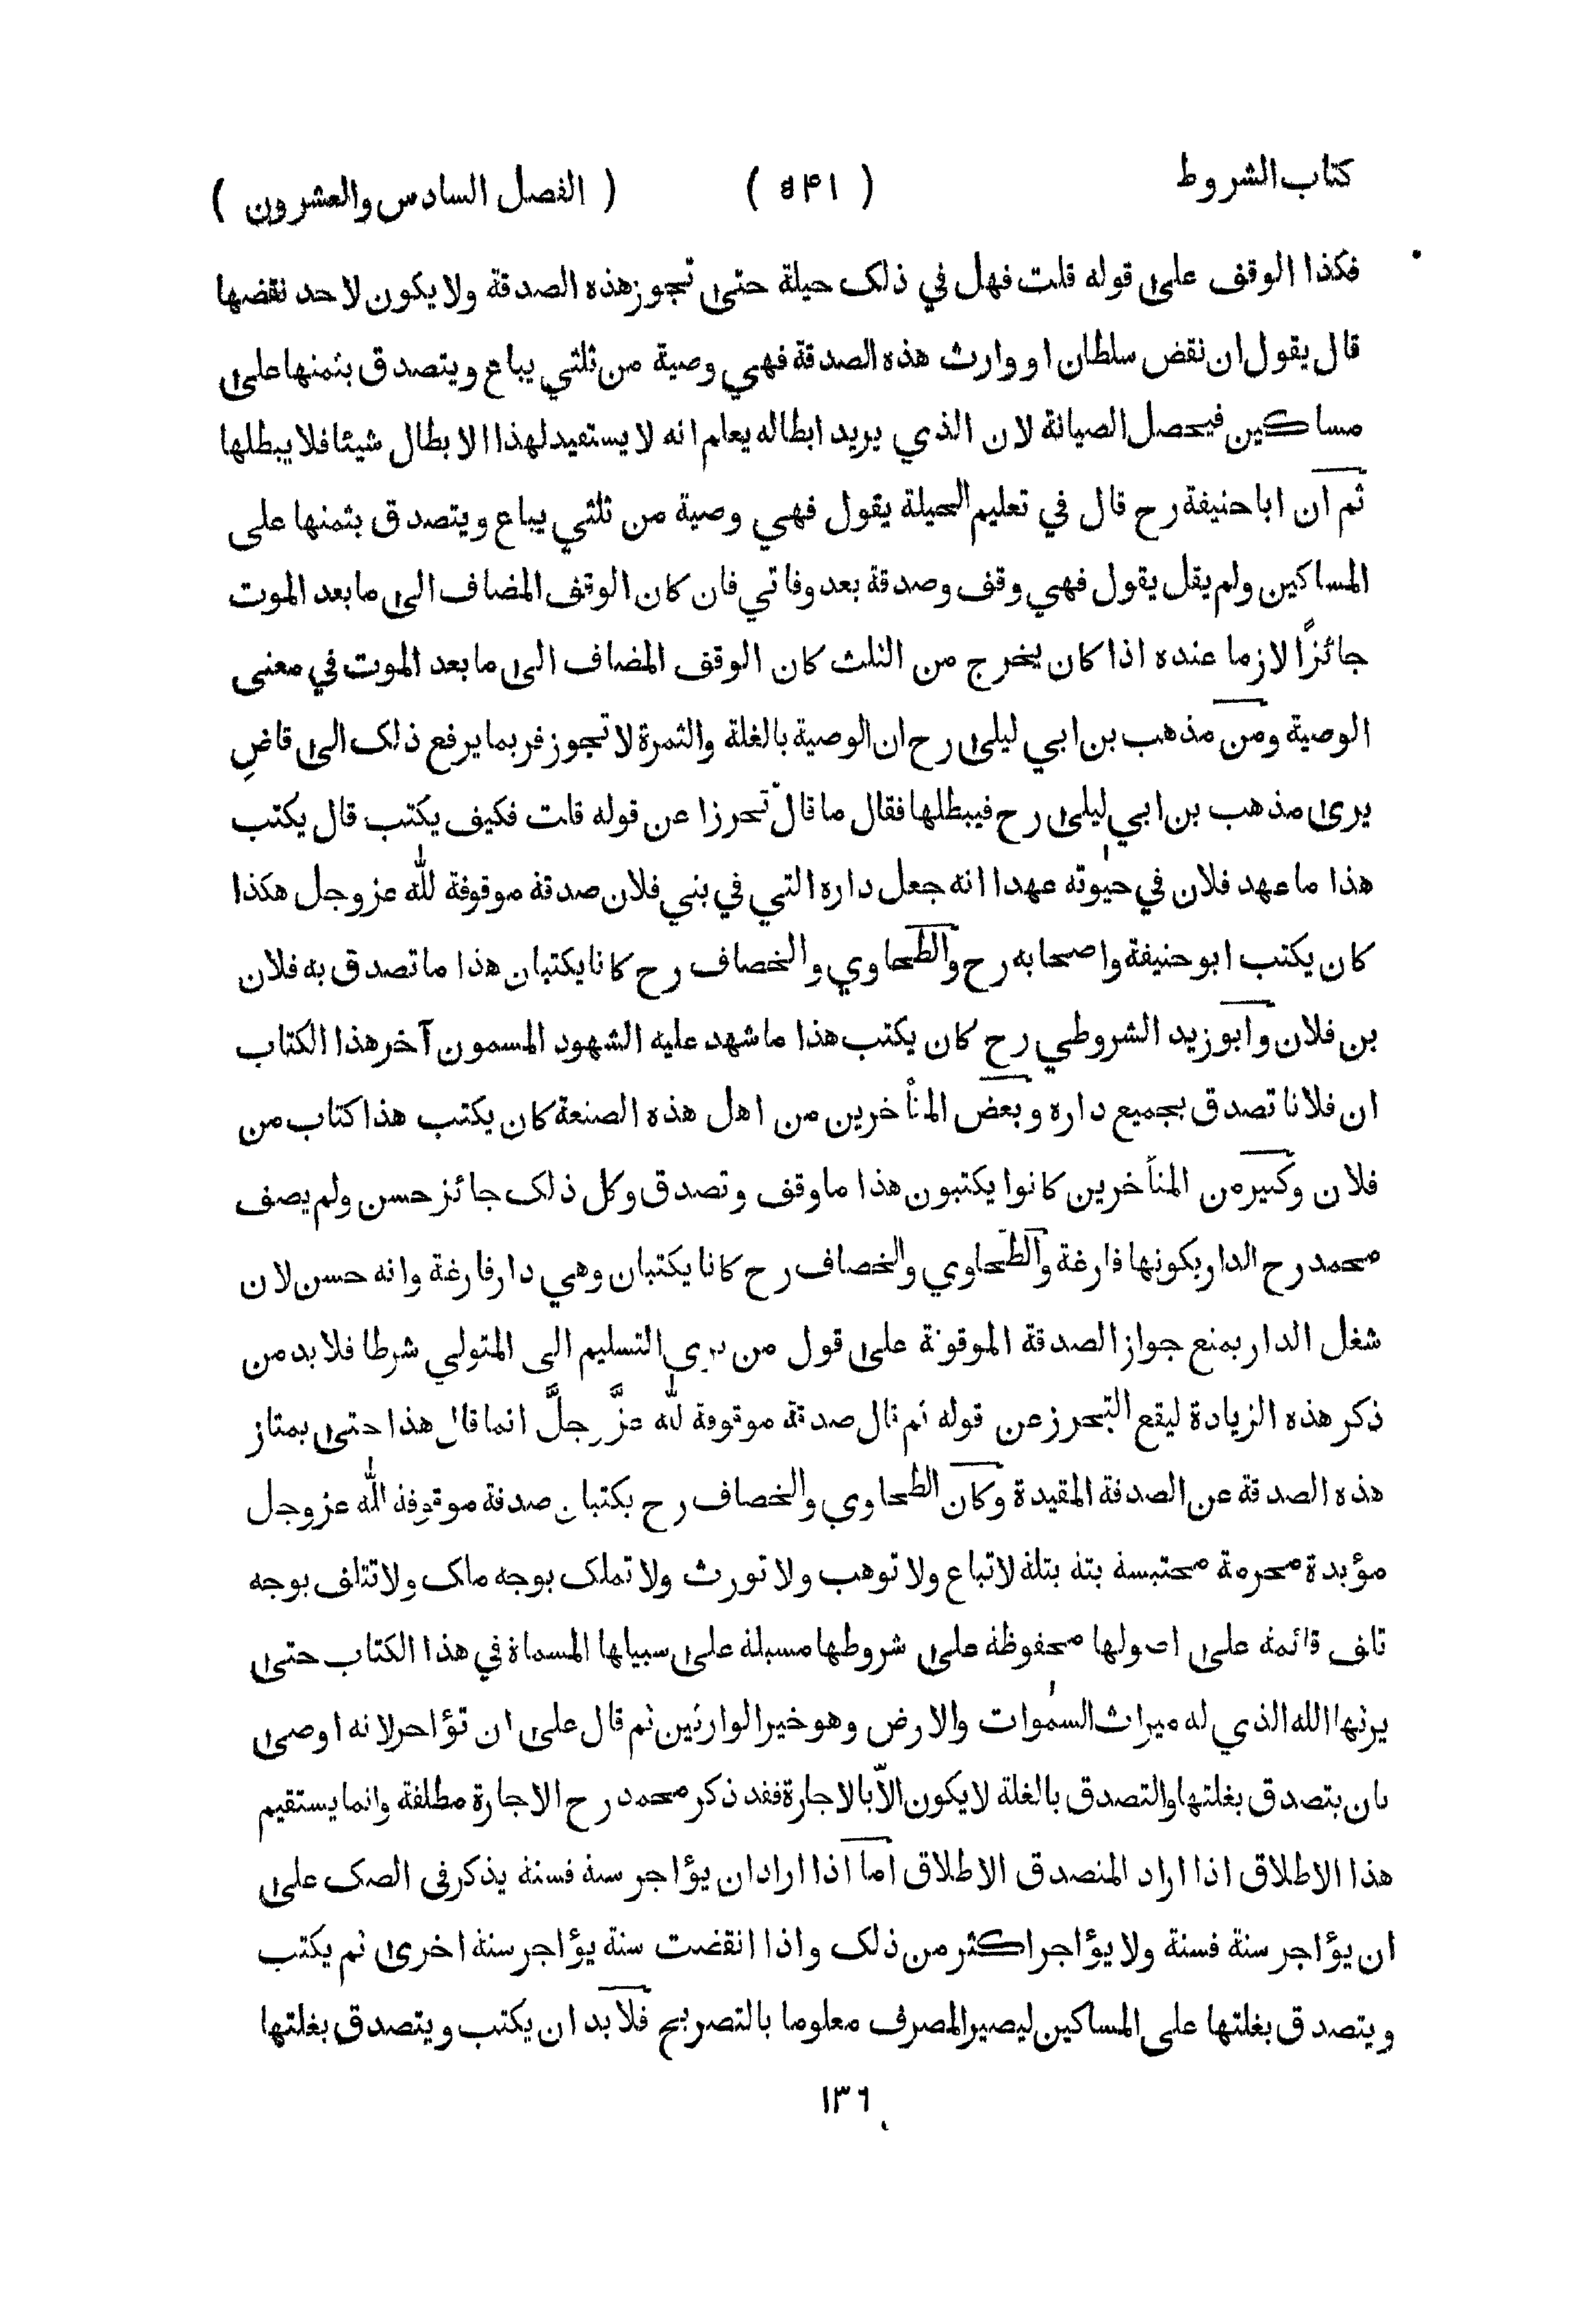 كتاب الشروط ( ٥٤١ ) ( الفصل السادس والعشرون )
فكذا الوقف على قوله قلت فهل في ذلك حيلة حتى تجوز هذه الصدقة ولا يكون لاحد نقضها
قال يقول ان نقض سلطان او وارث هذه الصدقة فهي وصية من ثلثي يباع ويتصدق بثمنها على
مساكين فيحصل الصيانة لان الذي يريد ابطاله يعلم انه لا يستفيد لهذا الابطال شيئا فلا يبطلها
ثم ان ابا حنيفة رح قال في تعليم الحيلة يقول فهي وصية من ثلثي يباع ويتصدق بثمنها على
المساكين ولم يقل يقول فهي وقف وصدقة بعد وفاتي فان كان الوقف المضاف الى ما بعد الموت
جائزًا لازما عنده اذا كان يخرج من الثلث كان الوقف المضاف الى ما بعد الموت في معنى
الوصية ومن مذهب بن ابي ليلى رح ان الوصية بالغلة والثمرة لا تجوز فربما يرفع ذلك الى قاضٍ
يرى مذهب بن ابي ليلى رح فيبطلها فقال ما قال تحرزا عن قوله قلت فكيف يكتب قال يكتب
هذا ما عهد فلان في حيوٰته عهدا انه جعل داره التي في بني فلان صدقة موقوفة لله عز وجل هكذا
كان يكتب ابو حنيفة واصحابه رح والطحاوي والخصاف رح كانا يكتبان هذا ما تصدق به فلان
بن فلان وابو زيد الشروطي رح كان يكتب هذا ما شهد عليه الشهود المسمون آخر هذا الكتاب
ان فلانا تصدق بجميع داره وبعض المتأخرين من اهل هذه الصنعة كان يكتب هذا كتاب من
فلان وكثير من المتأخرين كانوا يكتبون هذا ما وقف وتصدق وكل ذلك جائز حسن ولم يصف
محمد رح الدار بكونها فارغة والطحاوي والخصاف رح كانا يكتبان وهي دار فارغة وانه حسن لان
شغل الدار يمنع جواز الصدقة الموقوفة على قول من يرى التسليم الى المتولي شرطا فلا بد من
ذكر هذه الزيادة ليقع التحرز عن قوله ثم قال صدقة موقوفة لله عزَّ وجلَّ انما قال هذا حتى يمتاز
هذه الصدقة عن الصدقة المقيدة وكان الطحاوي والخصاف رح يكتبان صدقة موقوفة لله عز وجل
مؤبدة محرمة محتبسة بتة بتلة لا تباع ولا توهب ولا تورث ولا تملك بوجه ملك ولا تتلف بوجه
تلف قائمة على اصولها محفوظة على شروطها مسبلة على سبيلها المسماة في هذا الكتاب حتى
يرثها الله الذي له ميراث السمٰوات والارض وهو خير الوارثين ثم قال على ان تؤاجر لانه اوصى
بان يتصدق بغلتها والتصدق بالغلة لا يكون الّا بالاجارة فقد ذكر محمد رح الاجارة مطلقة وانما يستقيم
هذا الاطلاق اذا اراد المتصدق الاطلاق اما اذا اراد ان يؤاجر سنة فسنة يذكر في الصك على
ان يؤاجر سنة فسنة ولا يؤاجر اكثر من ذلك واذا انقضت سنة يؤاجر سنة اخرى ثم يكتب
ويتصدق بغلتها على المساكين ليصير المصرف معلوما بالتصريح فلا بد ان يكتب ويتصدق بغلتها
١٣٦